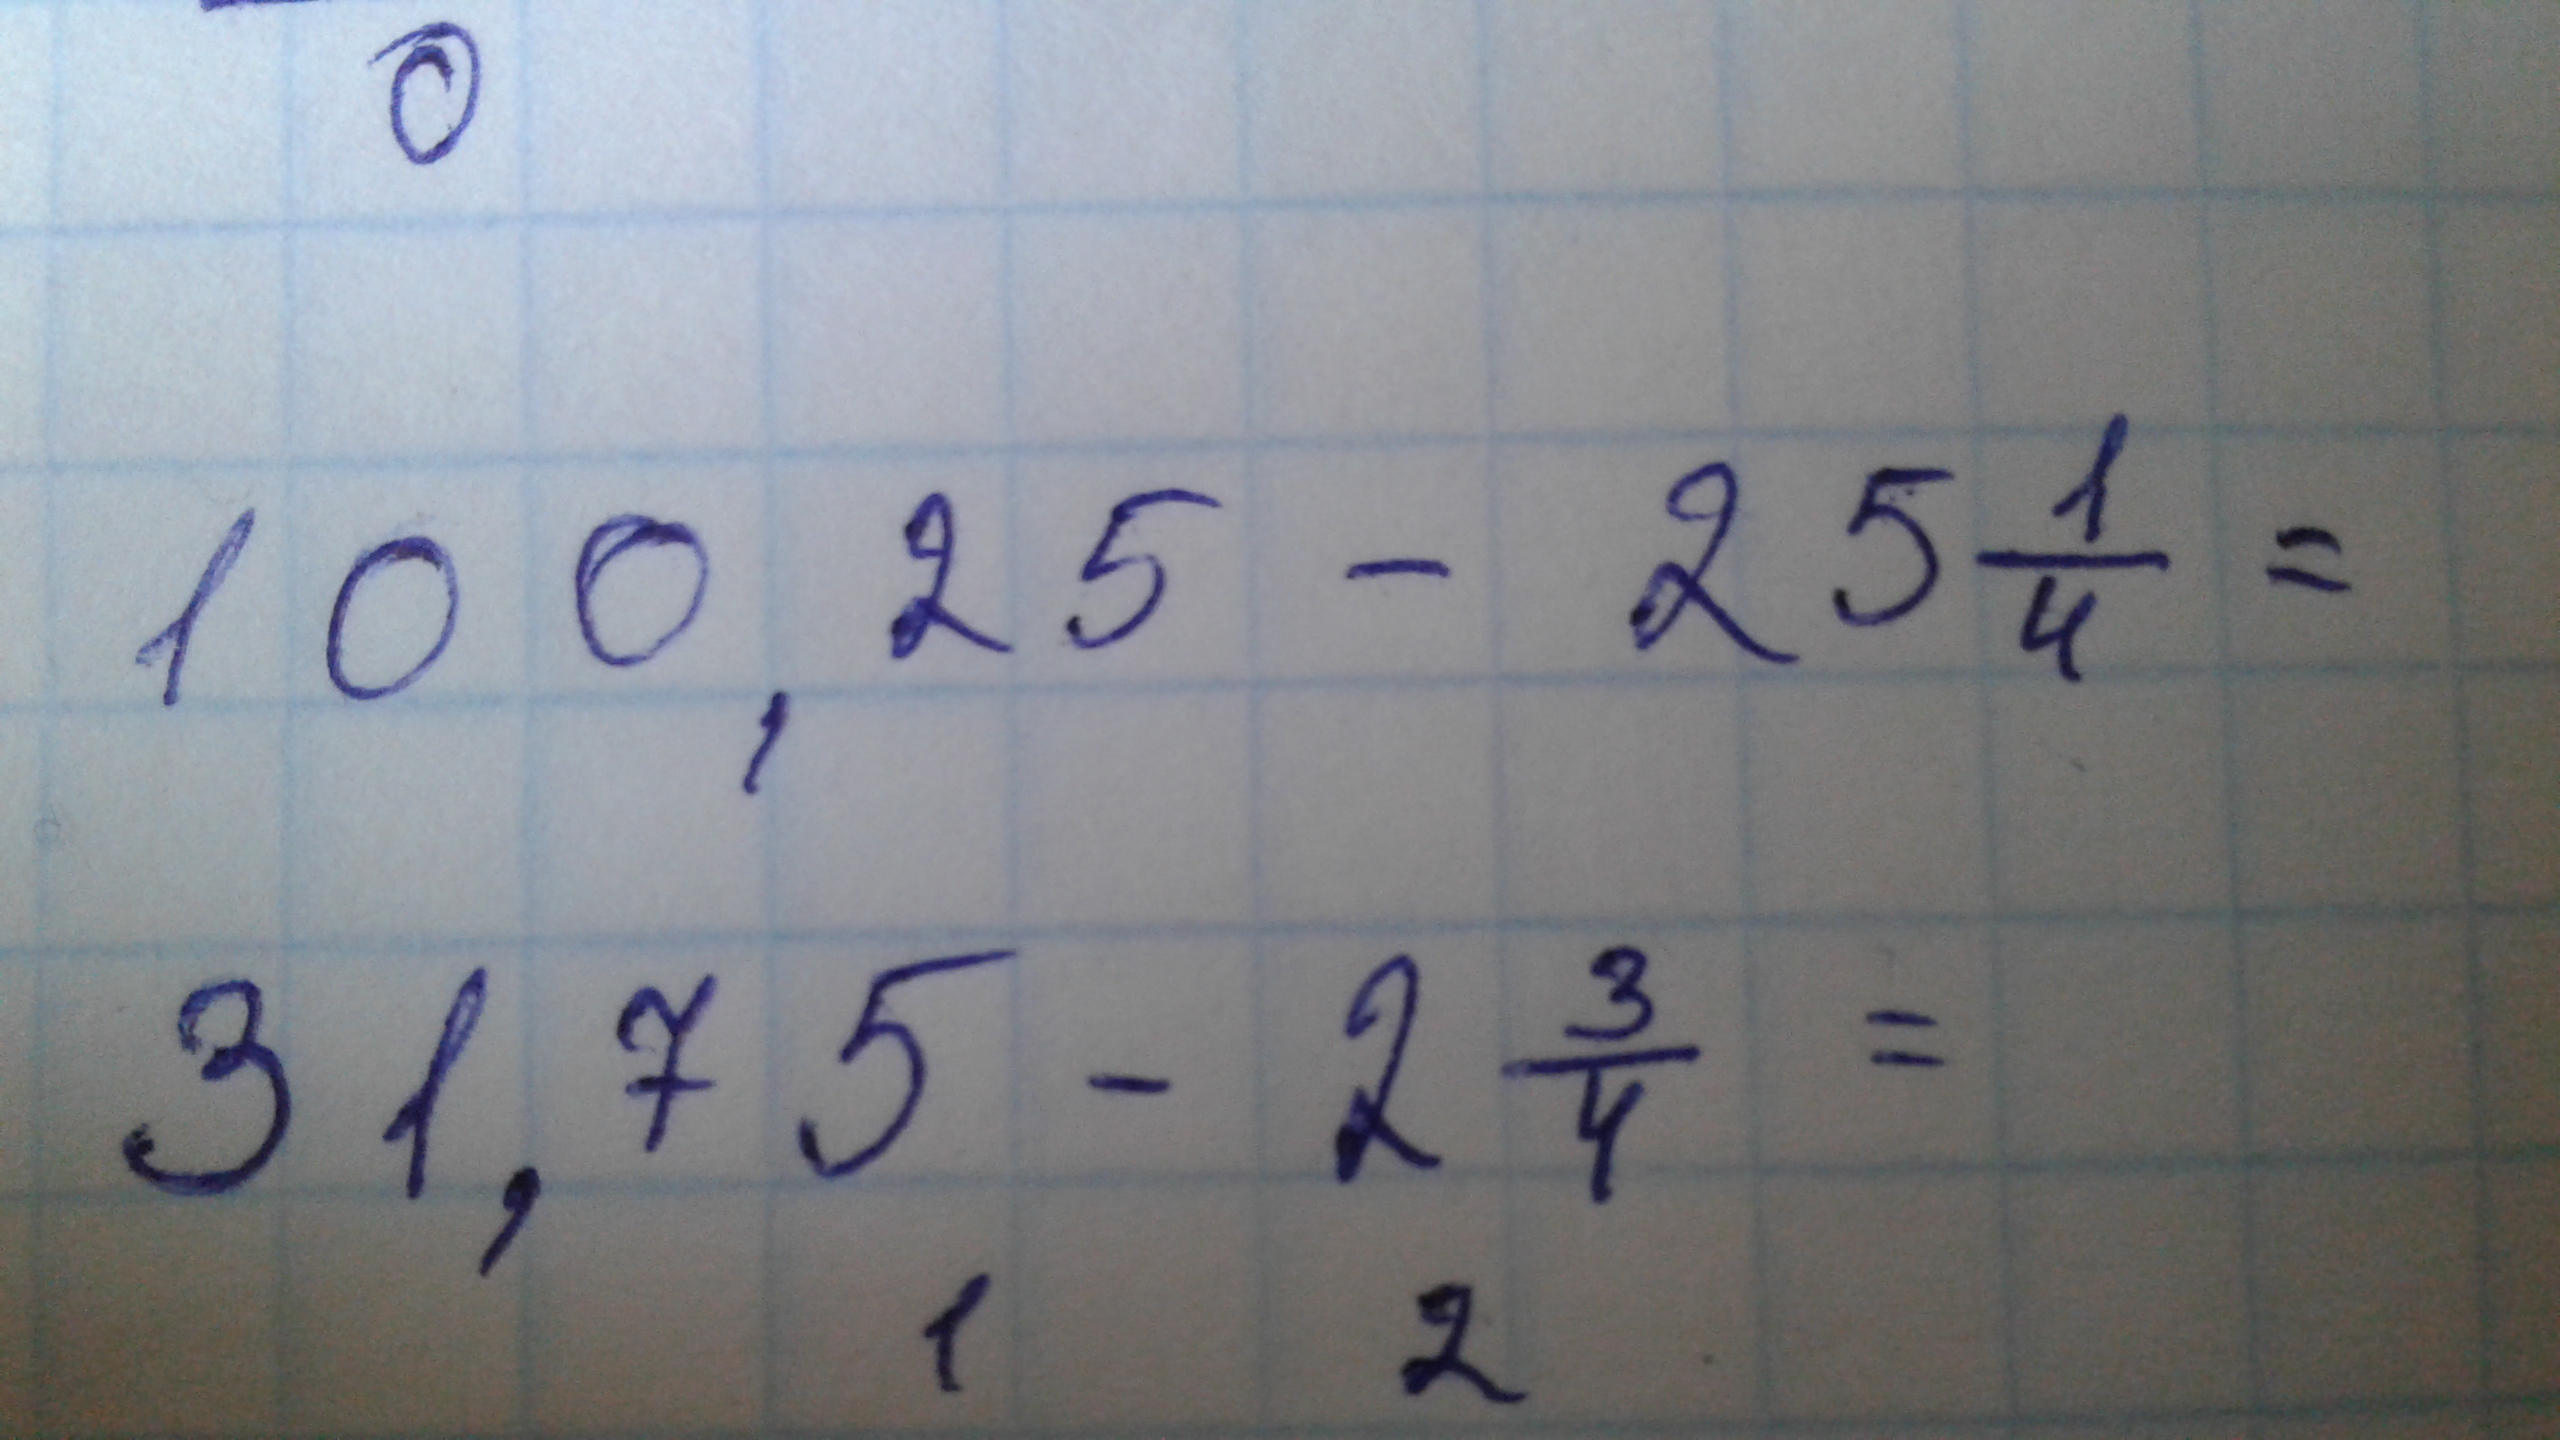 0
100,25 - 25 1/4 =
31,75 - 2 3/4 =
1 2